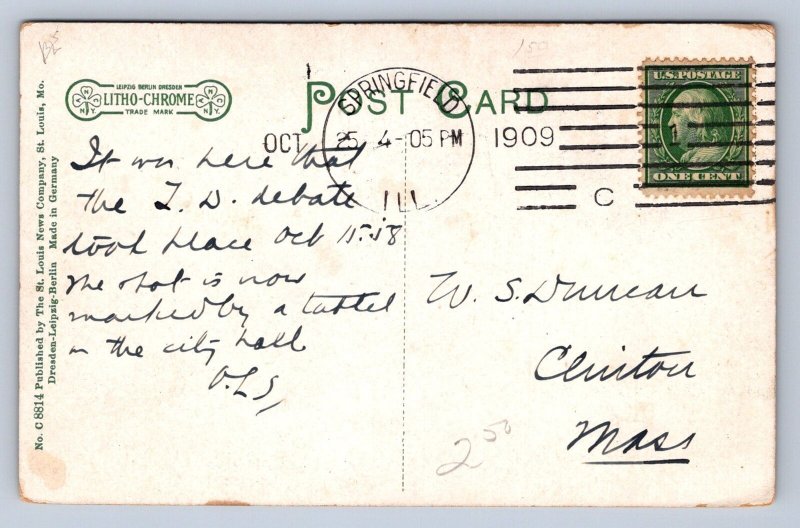 BS
150
LEIPZIG BERLIN DRESDEN
LITHO-CHROME
TRADE MARK
POST CARD
SPRINGFIELD
OCT 25 4-05 PM 1909
ILL.
C
U.S. POSTAGE
1
ONE CENT
No. C 8814 Published by The St. Louis News Company, St. Louis, Mo.
Dresden-Leipzig-Berlin Made in Germany
It was here that
the L. D. debate
took place Oct 15-58
The spot is now
marked by a tablet
on the city hall
O.L.S,
W. S. Duncan
Clinton
Mass
2 50